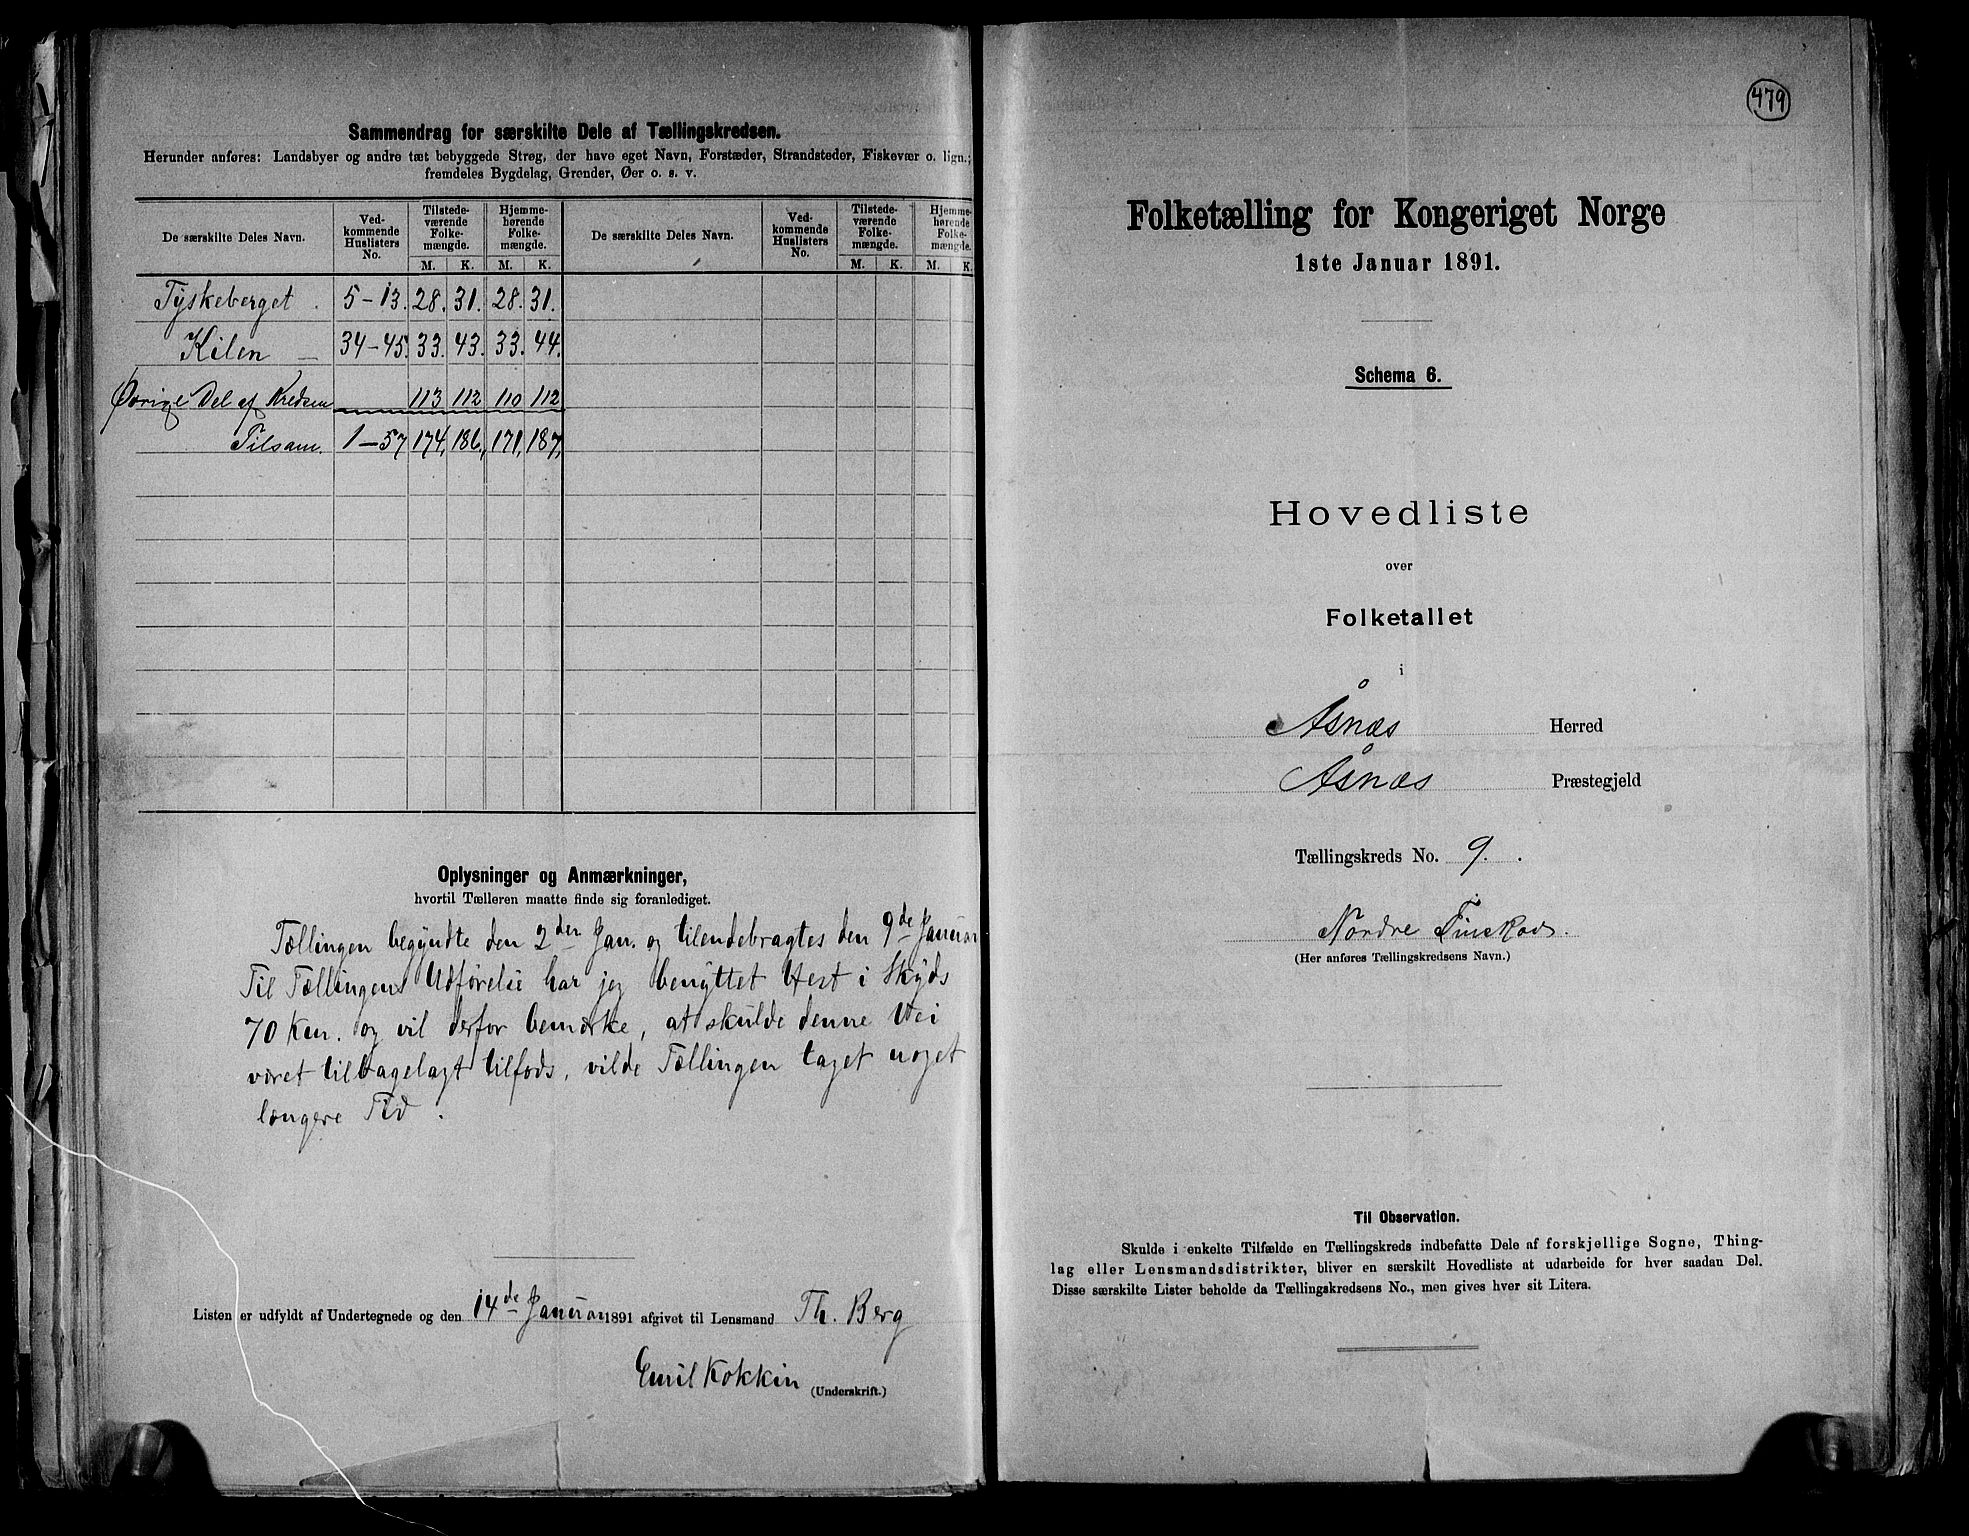 Sammendrag for særskilte Dele af Tællingskredsen.
Herunder anføres: Landsbyer og andre tæt bebyggede Strøg, der have eget Navn, Forstæder, Strandsteder, Fiskevær o. lign.;
fremdeles Bygdelag, Grender, Øer o. s. v.
De særskilte Deles Navn. Ved-kommende Huslisters No. Tilstede-værende Folke-mængde. Hjemme-hørende Folke-mængde. De særskilte Deles Navn. Ved-kommende Huslisters No. Tilstede-værende Folke-mængde. Hjemme-hørende Folke-mængde.
M. K. M. K. M. K. M. K.
Tyskeberget . 5-13. 28. 31. 28. 31.
Kilen — 34-45. 33. 43. 33. 44.
Øvrige Del af Kredsen 113 112 110 112
Tilsam. 1-57 174, 186., 171, 187,
Oplysninger og Anmærkninger,
hvortil Tælleren maatte finde sig foranlediget.
Tællingen begyndte den 2den Jan. og tilendebragtes den 9de Januar
Til Tællingens Udførelse har jeg benyttet Hest i Skyds
70 Km. og vil derfor bemærke, at skulde denne Vei
været tilbagelagt tilfods, vilde Tællingen taget noget
længere Tid.
Listen er udfyldt af Undertegnede og den 14de Januar 1891 afgivet til Lensmand Th. Berg
Emil Kokkin
(Underskrift.)
479
Folketælling for Kongeriget Norge
1ste Januar 1891.
Schema 6.
Hovedliste
over
Folketallet
i
Åsnæs Herred
Åsnæs Præstegjeld
Tællingskreds No. 9.
Nordre Finskov.
(Her anføres Tællingskredsens Navn.)
Til Observation.
Skulde i enkelte Tilfælde en Tællingskreds indbefatte Dele af forskjellige Sogne, Thing-
lag eller Lensmandsdistrikter, bliver en særskilt Hovedliste at udarbeide for hver saadan Del.
Disse særskilte Lister beholde da Tællingskredsens No., men gives hver sit Litera.